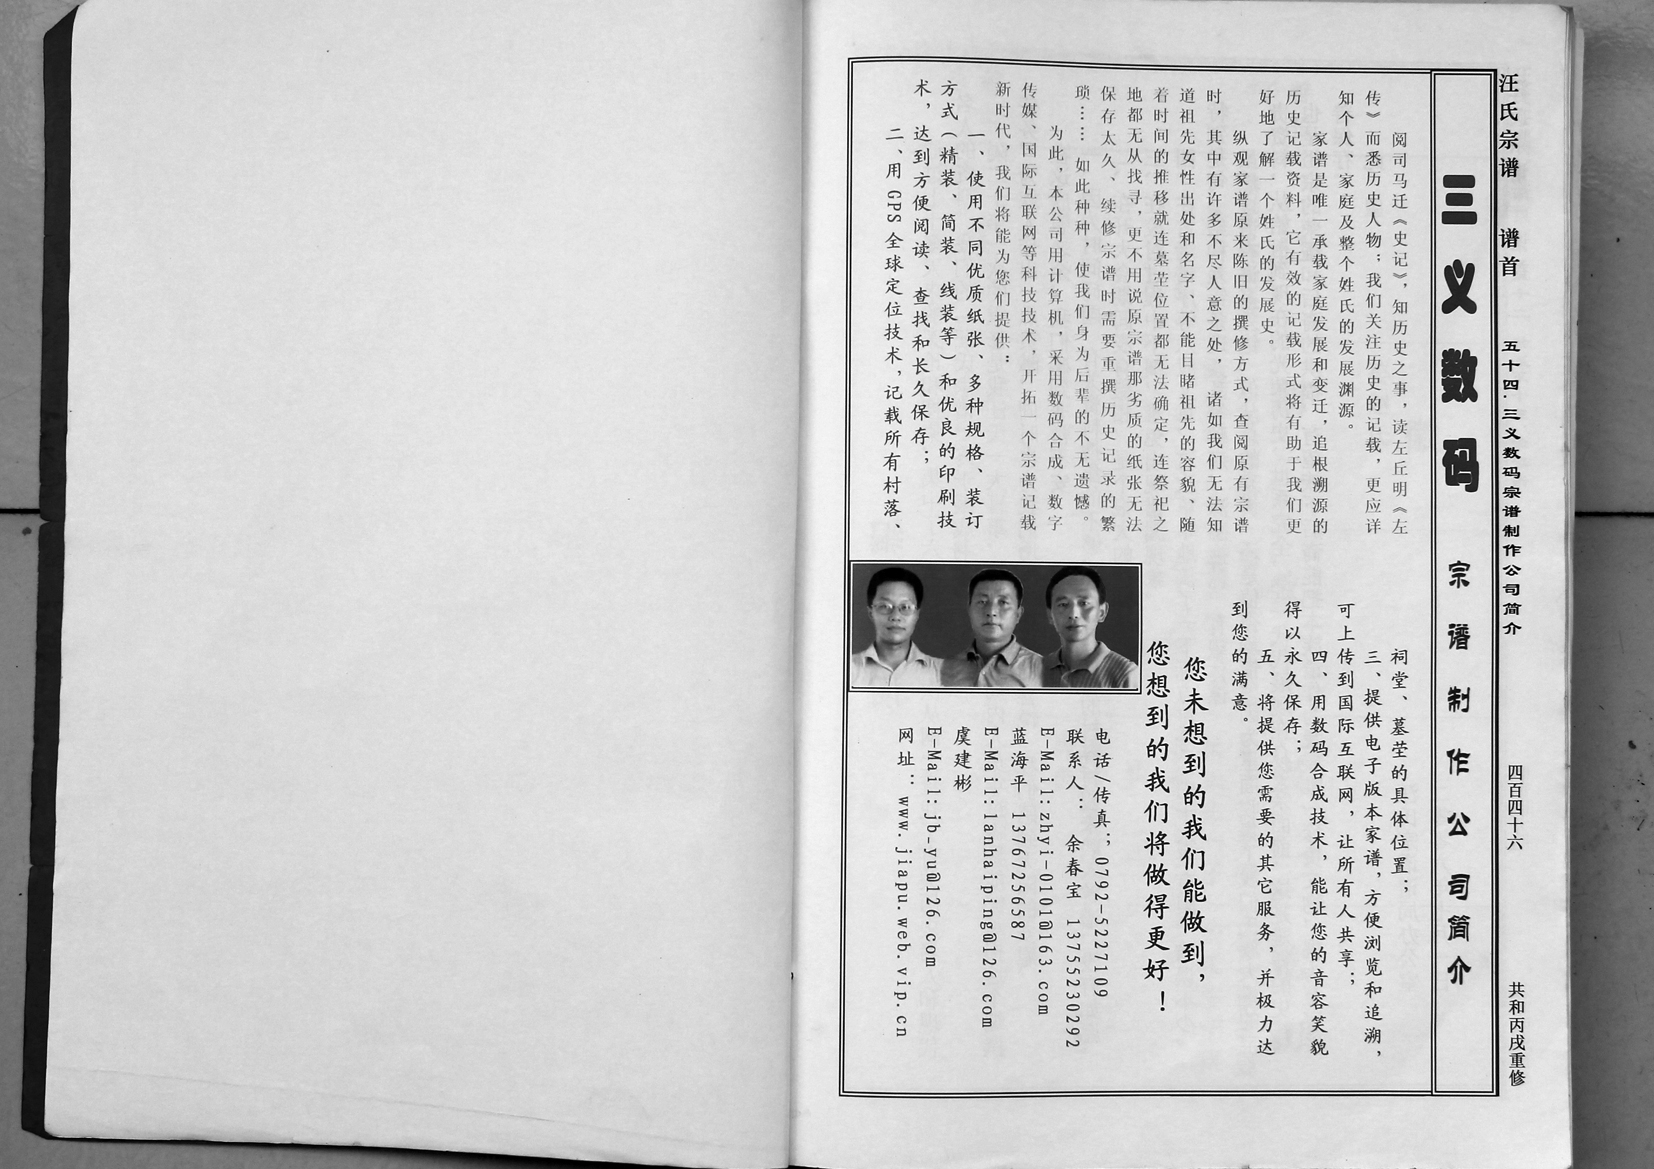 汪氏宗谱 谱首 五十四.三义数码宗谱制作公司简介 四百四十六 共和丙戌重修
三义数码 宗谱制作公司简介
阅司马迁《史记》，知历史之事，读左丘明《左
传》而悉历史人物；我们关注历史的记载，更应详
知个人、家庭及整个姓氏的发展渊源。
家谱是唯一承载家庭发展和变迁，追根溯源的
历史记载资料，它有效的记载形式将有助于我们更
好地了解一个姓氏的发展史。
纵观家谱原来陈旧的撰修方式，查阅原有宗谱
时，其中有许多不尽人意之处，诸如我们无法知
道祖先女性出处和名字、不能目睹祖先的容貌、随
着时间的推移就连墓茔位置都无法确定，连祭祀之
地都无从找寻，更不用说原宗谱那劣质的纸张无法
保存太久、续修宗谱时需要重撰历史记录的繁
琐……如此种种，使我们身为后辈的不无遗憾。
为此，本公司用计算机，采用数码合成、数字
传媒、国际互联网等科技技术，开拓一个宗谱记载
新时代，我们将能为您们提供：
一、使用不同优质纸张、多种规格、装订
方式（精装、简装、线装等）和优良的印刷技
术，达到方便阅读、查找和长久保存；
二、用GPS全球定位技术，记载所有村落、
祠堂、墓茔的具体位置；
三、提供电子版本家谱，方便浏览和追溯，
可上传到国际互联网，让所有人共享；
四、用数码合成技术，能让您的音容笑貌
得以永久保存；
五、将提供您需要的其它服务，并极力达
到您的满意。
您未想到的我们能做到，
您想到的我们将做得更好！
电话/传真；0792-5227109
联系人：余春宝 13755230292
E-Mail:zhyi-0101@163.com
蓝海平 13767256587
E-Mail:lanhaiping@126.com
虞建彬
E-Mail:jb-yu@126.com
网址：www.jiapu.web.vip.cn